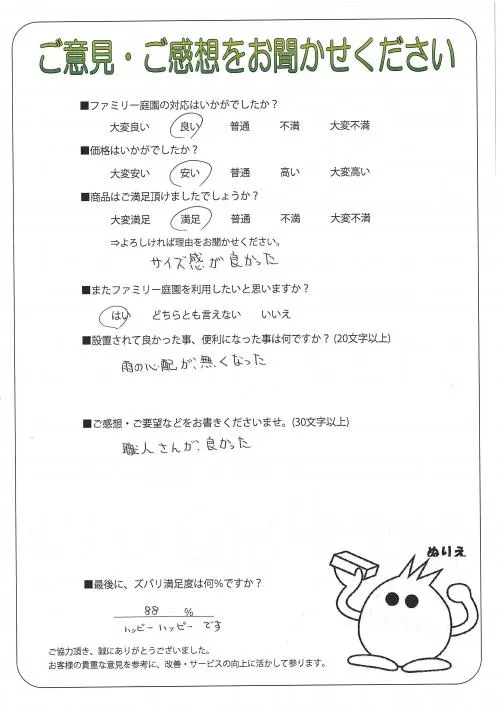 ご意見・ご感想をお聞かせください
■ファミリー庭園の対応はいかがでしたか？
大変良い 良い 普通 不満 大変不満
■価格はいかがでしたか？
大変安い 安い 普通 高い 大変高い
■商品はご満足頂けましたでしょうか？
大変満足 満足 普通 不満 大変不満
⇒よろしければ理由をお聞かせください。
サイズ感が良かった
■またファミリー庭園を利用したいと思いますか？
はい どちらとも言えない いいえ
■設置されて良かった事、便利になった事は何ですか？(20文字以上)
雨の心配が、無くなった
■ご感想・ご要望などをお書きくださいませ。(30文字以上)
職人さんが、良かった
ぬりえ
■最後に、ズバリ満足度は何％ですか？
88 %
ハッピーハッピーです
ご協力頂き、誠にありがとうございました。
お客様の貴重な意見を参考に、改善・サービスの向上に活かして参ります。